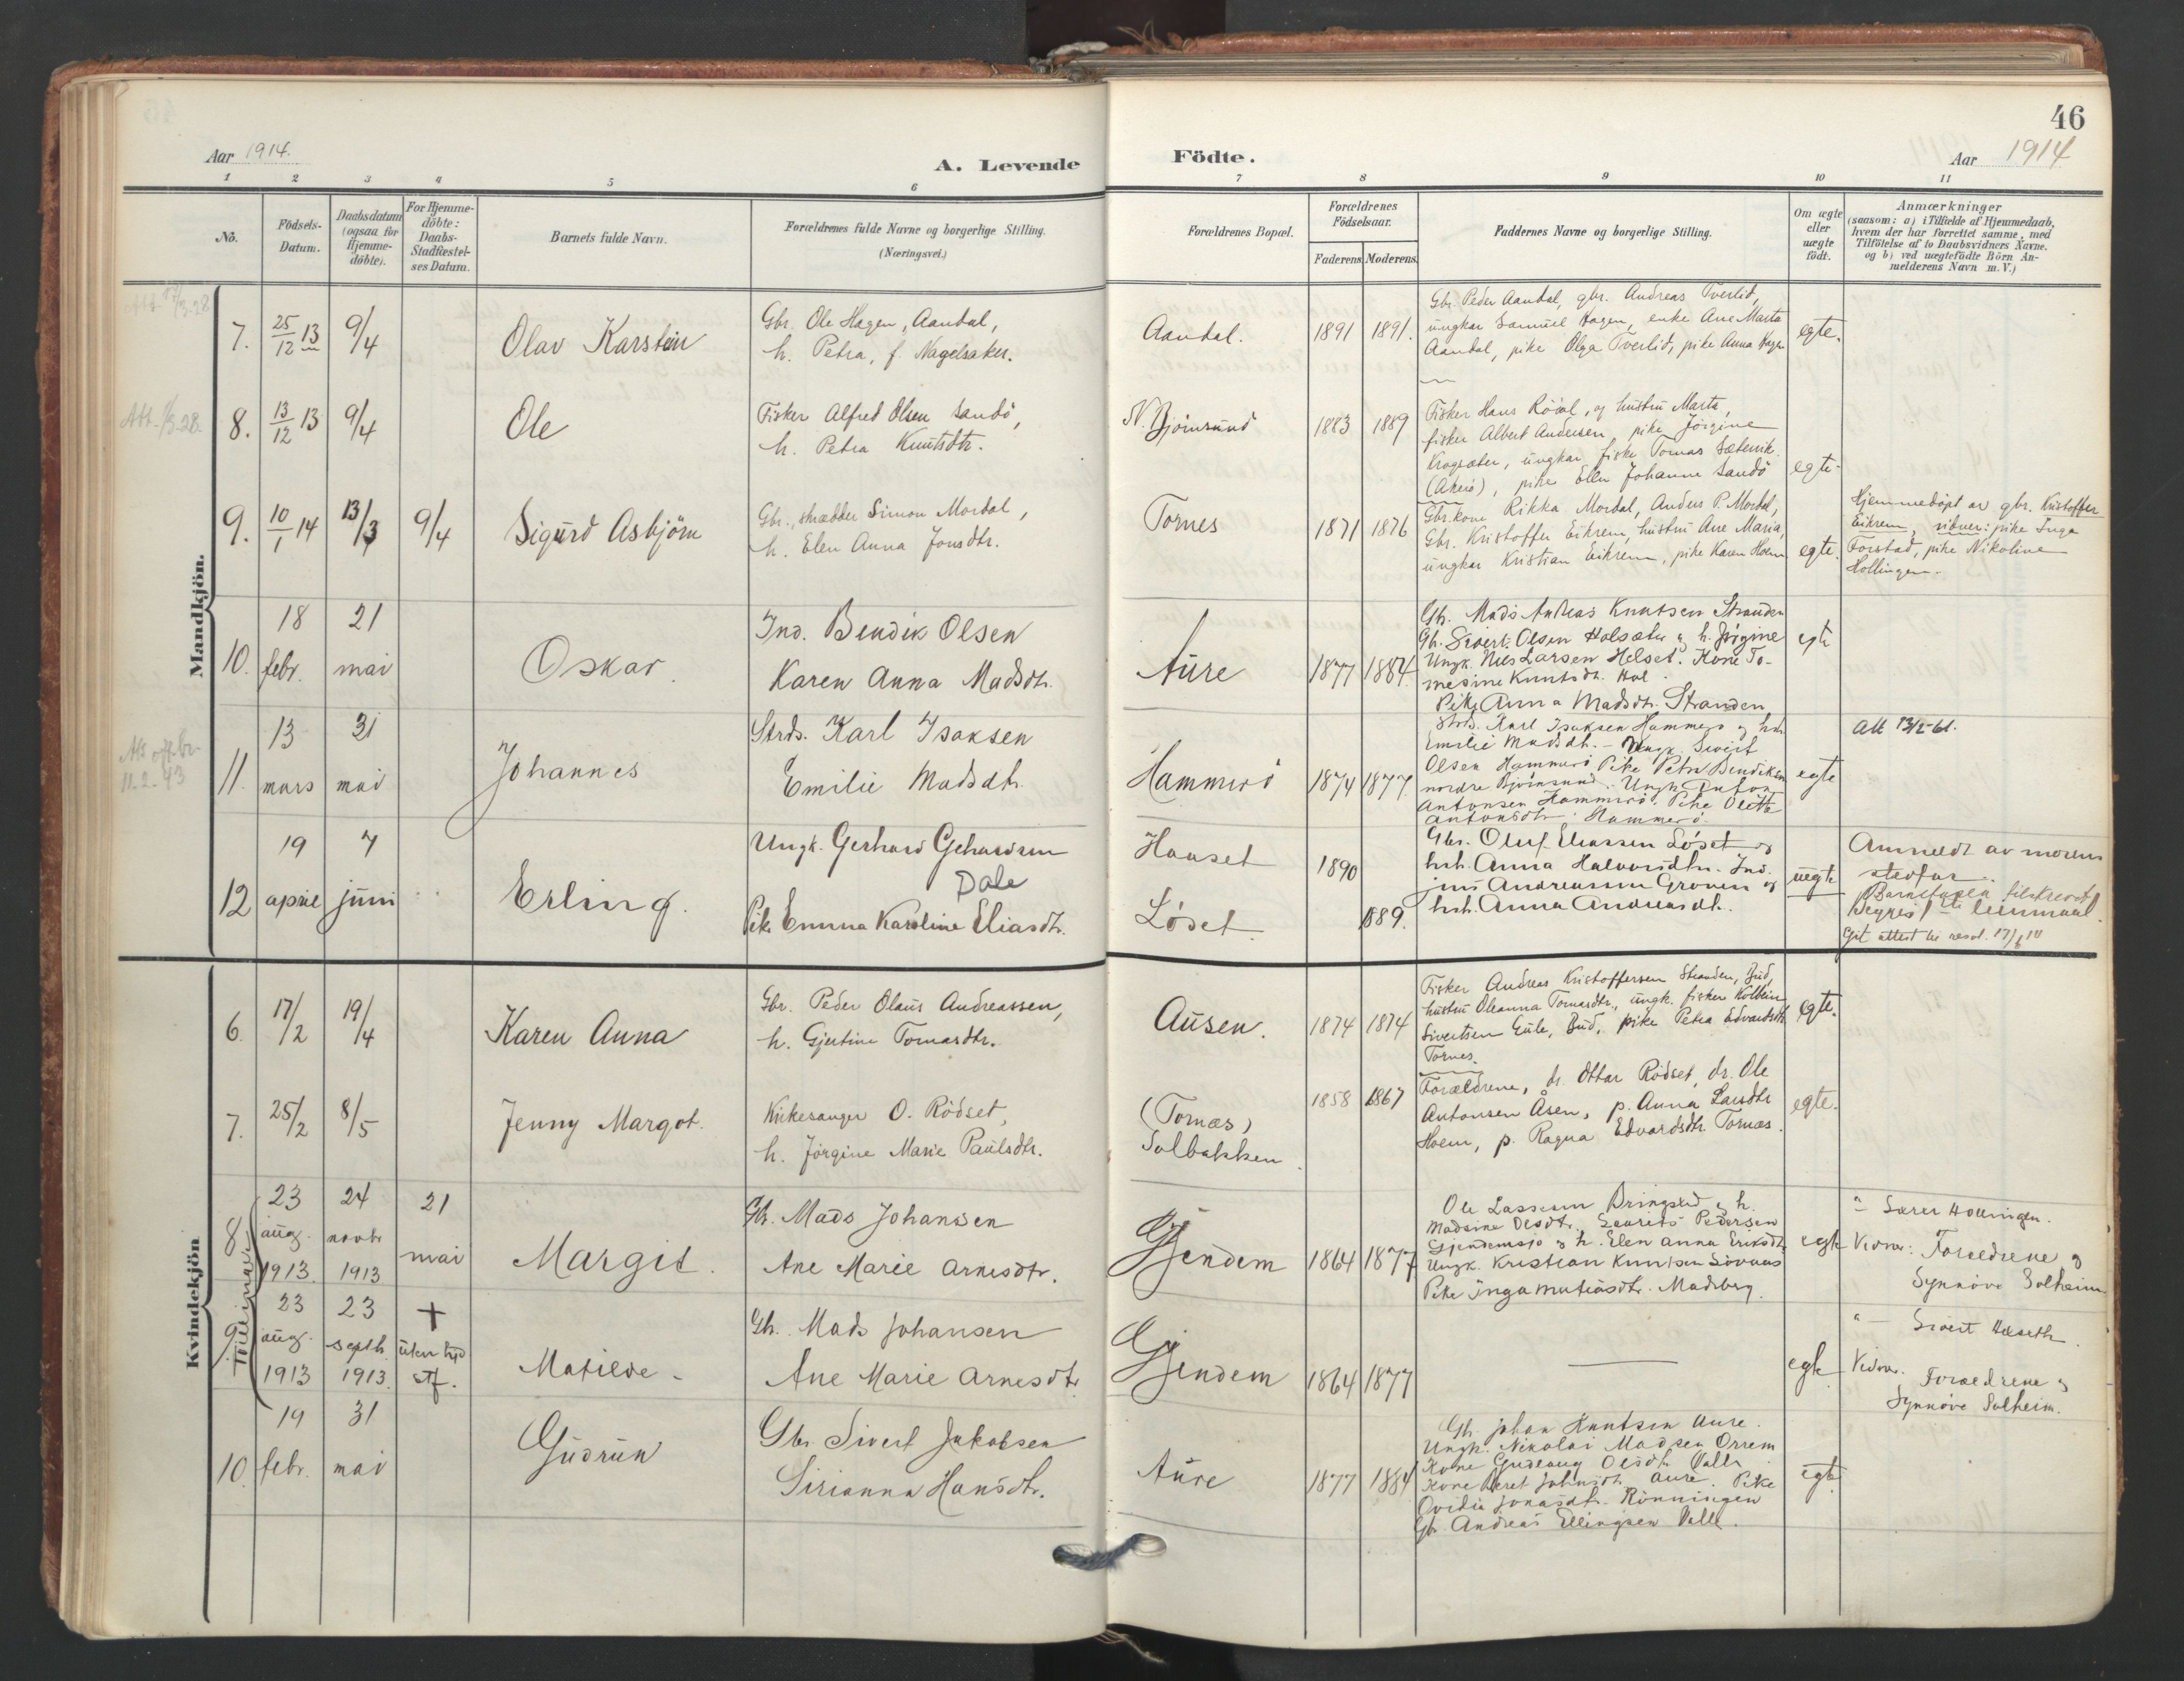 46
Aar 1914.
A. Levende
Födte.
Aar 1914
1 2 3 4 5 6 7 8 9 10 11
Nö.
Födsels-
Datum.
Daabsdatum
(ogsaa for
Hjemme-
döbte).
For Hjemme-
döbte:
Daabs-
Stadfæstel-
ses Datum.
Barnets fulde Navn.
Forældrenes fulde Navne og borgerlige Stilling.
(Næringsvei.)
Forældrenes Bopæl.
Forældrenes
Födselsaar.
Faderens Moderens
Faddernes Navne og borgerlige Stilling.
Om ægte
eller
uægte
födt.
Anmærkninger
(saasom: a) i Tilfælde af Hjemmedaab,
hvem der har forrettet samme, med
Tilföielse af to Daabsvidners Navne.
og b) ved uægtefödte Börn An-
melderens Navn m. V.)
Mandkjön.
7. 25/12 13 9/4
Olav Karstein
Gbr. Ole Hagen, Aandal,
h. Petra, f. Nagelsaker.
Aandal. 1891 1891.
Gbr. Peder Aandal, gbr. Andreas Tverlid,
ungkar Samuel Hagen, enke Ane Marta
Aandal, pike Olga Tverlid, pike Anna Hagen
egte.
Att. 1/3-28.
8. 13/12 13 9/4
Ole
Fisker Alfred Olsen Sandö,
h. Petra Knutsdtr.
N. Bjørnsund 1883 1889
Fisker Hans Röösl, og hustru Marta,
fisker Albert Andersen, pike Jörgine
Kragsæter, ungkar fisker Tomas Sætervik
(Akerö), pike Elen Johanne Sandö
egte.
9. 10/1 14 13/3 9/4
Sigurd Asbjörn
Gbr., skrædder Simon Mordal,
h. Elen Anna Jonsdtr.
Tornes 1871 1876
Gbr.kone Rikka Mordal, Anders P. Mordal,
Gbr. Kristoffer Eikrem, hustru Ane Maria,
ungkar Kristian Eikrem, pike Karen Hoem
egte.
Hjemmedöpt av gbr. Kristoffer
Eikrem, vidner: pike Inga
Forstad, pike Nikoline
Hollingen.
10. 18 febr. 21 mai
Oskar.
Ind. Bendik Olsen
Karen Anna Madsdtr.
Aure 1877 1884.
Gbr. Mads Andreas Knutsen Stranden
Gb. Sivert Olsen Holsæter og h. Jørgine
Ungk. Nils Larsen Helset. Kone To-
mesine Knutsdt. Hol.
Pike Anna Madsdtr. Stranden
egte
11. 13 mars 31 mai
Johannes
Strds. Karl Isaksen
Emilie Madsdtr.
Hammerö 1874 1877
Strds. Karl Isaksen Hammerö og hst.
Emilie Madsdtr. – Ungk. Sivert
Olsen Hammerö Pike Petra Bendiksen
nordre Bjørnsund. Ungk. Anton
Antonsen Hammerö. Pike Oletta
Antonsdtr. Hammerö.
egte
Att 13/2-61.
11.-2.-43
12 19 april 7 juni
Erling.
Ungk. Gerhard Gehardsen
Dale
Pike Emma Karoline Eliasdtr.
Hauset 1890
Løset. 1889.
Gbr. Oluf Eliassen Løset og
hst. Anna Halvorsdtr. Ind.
Andreassen Groven og
hst. Anna Andreasdt.
uegte
Anmeldt av morens
stedfar.
Begges 1ste leiermaal.
Kvindekjön
6. 17/2 19/4
Karen Anna
Gbr. Peder Olaus Andreassen,
h. Gjertine Tomasdtr.
Ausen. 1874 1874
Fisker Andreas Kristoffersen Stranden, Bud,
hustru Oleanna Tomasdtr., ungk. fisker Kolbein
Sivertsen Eide, Bud, pike Petra Edvardsdtr.
Tornes.
egte.
7. 25/2 8/5
Jenny Margot.
Kirkesanger O. Rödset,
h. Jörgine Marie Paulsdtr.
(Tornæs)
Solbakken. 1858 1867
Forældrene, dr. Ottar Rödset, dr. Ole
Antonsen Åsen, p. Anna Larsdtr
Hoem, p. Ragna Edvardsdtr Tornæs.
egte.
Tvillinger
8 23 aug. 1913. 24 novbr 1913 21 mai
Margit.
Gb. Mads Johansen
Ane Marie Arnesdtr.
Gjendem 1864 1877
Ole Lassesen Bringsted og h.
Madsine Olsdtr. Laurits Pedersen
Gjendemsjø og h. Elen Anna Eriksdtr.
Ungk. Kristian Knutsen Sövnæs
Pike Inga Matiasdtr. Madsberg.
egte
Hollingen.
Vidner: Forældrene og
Synnöve Solheim
9. 23 aug. 1913 23 septbr. 1913. + uten höi stf.
Matilde.
Gb. Mads Johansen
Ane Marie Arnesdtr
Gjendem 1864 1877
egte
Sivert Hæseth.
Vidner. Forældrene og
Synnöve Solheim.
10. 19 febr. 31 mai
Gudrun
Gbr. Sivert Jakobsen
Sirianna Hansdtr.
Aure 1877 1884
Gb. Johan Knutsen Aure.
Ungk. Nikolai Madsen Orrem
Kone Gudlaug Olsdtr. Valle
Kone Beret Johnsdt. Aure. Pike
Ovidia Jonasdt. Rönningen
Gb. Andreas Ellingsen Valle.
egte